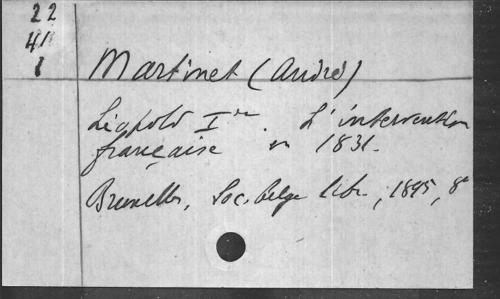 22
41
1
Martinet (André)
Léopold Ier. L'intervention
française en 1831.
Bruxelles, Soc. belge libr., 1895, 8°